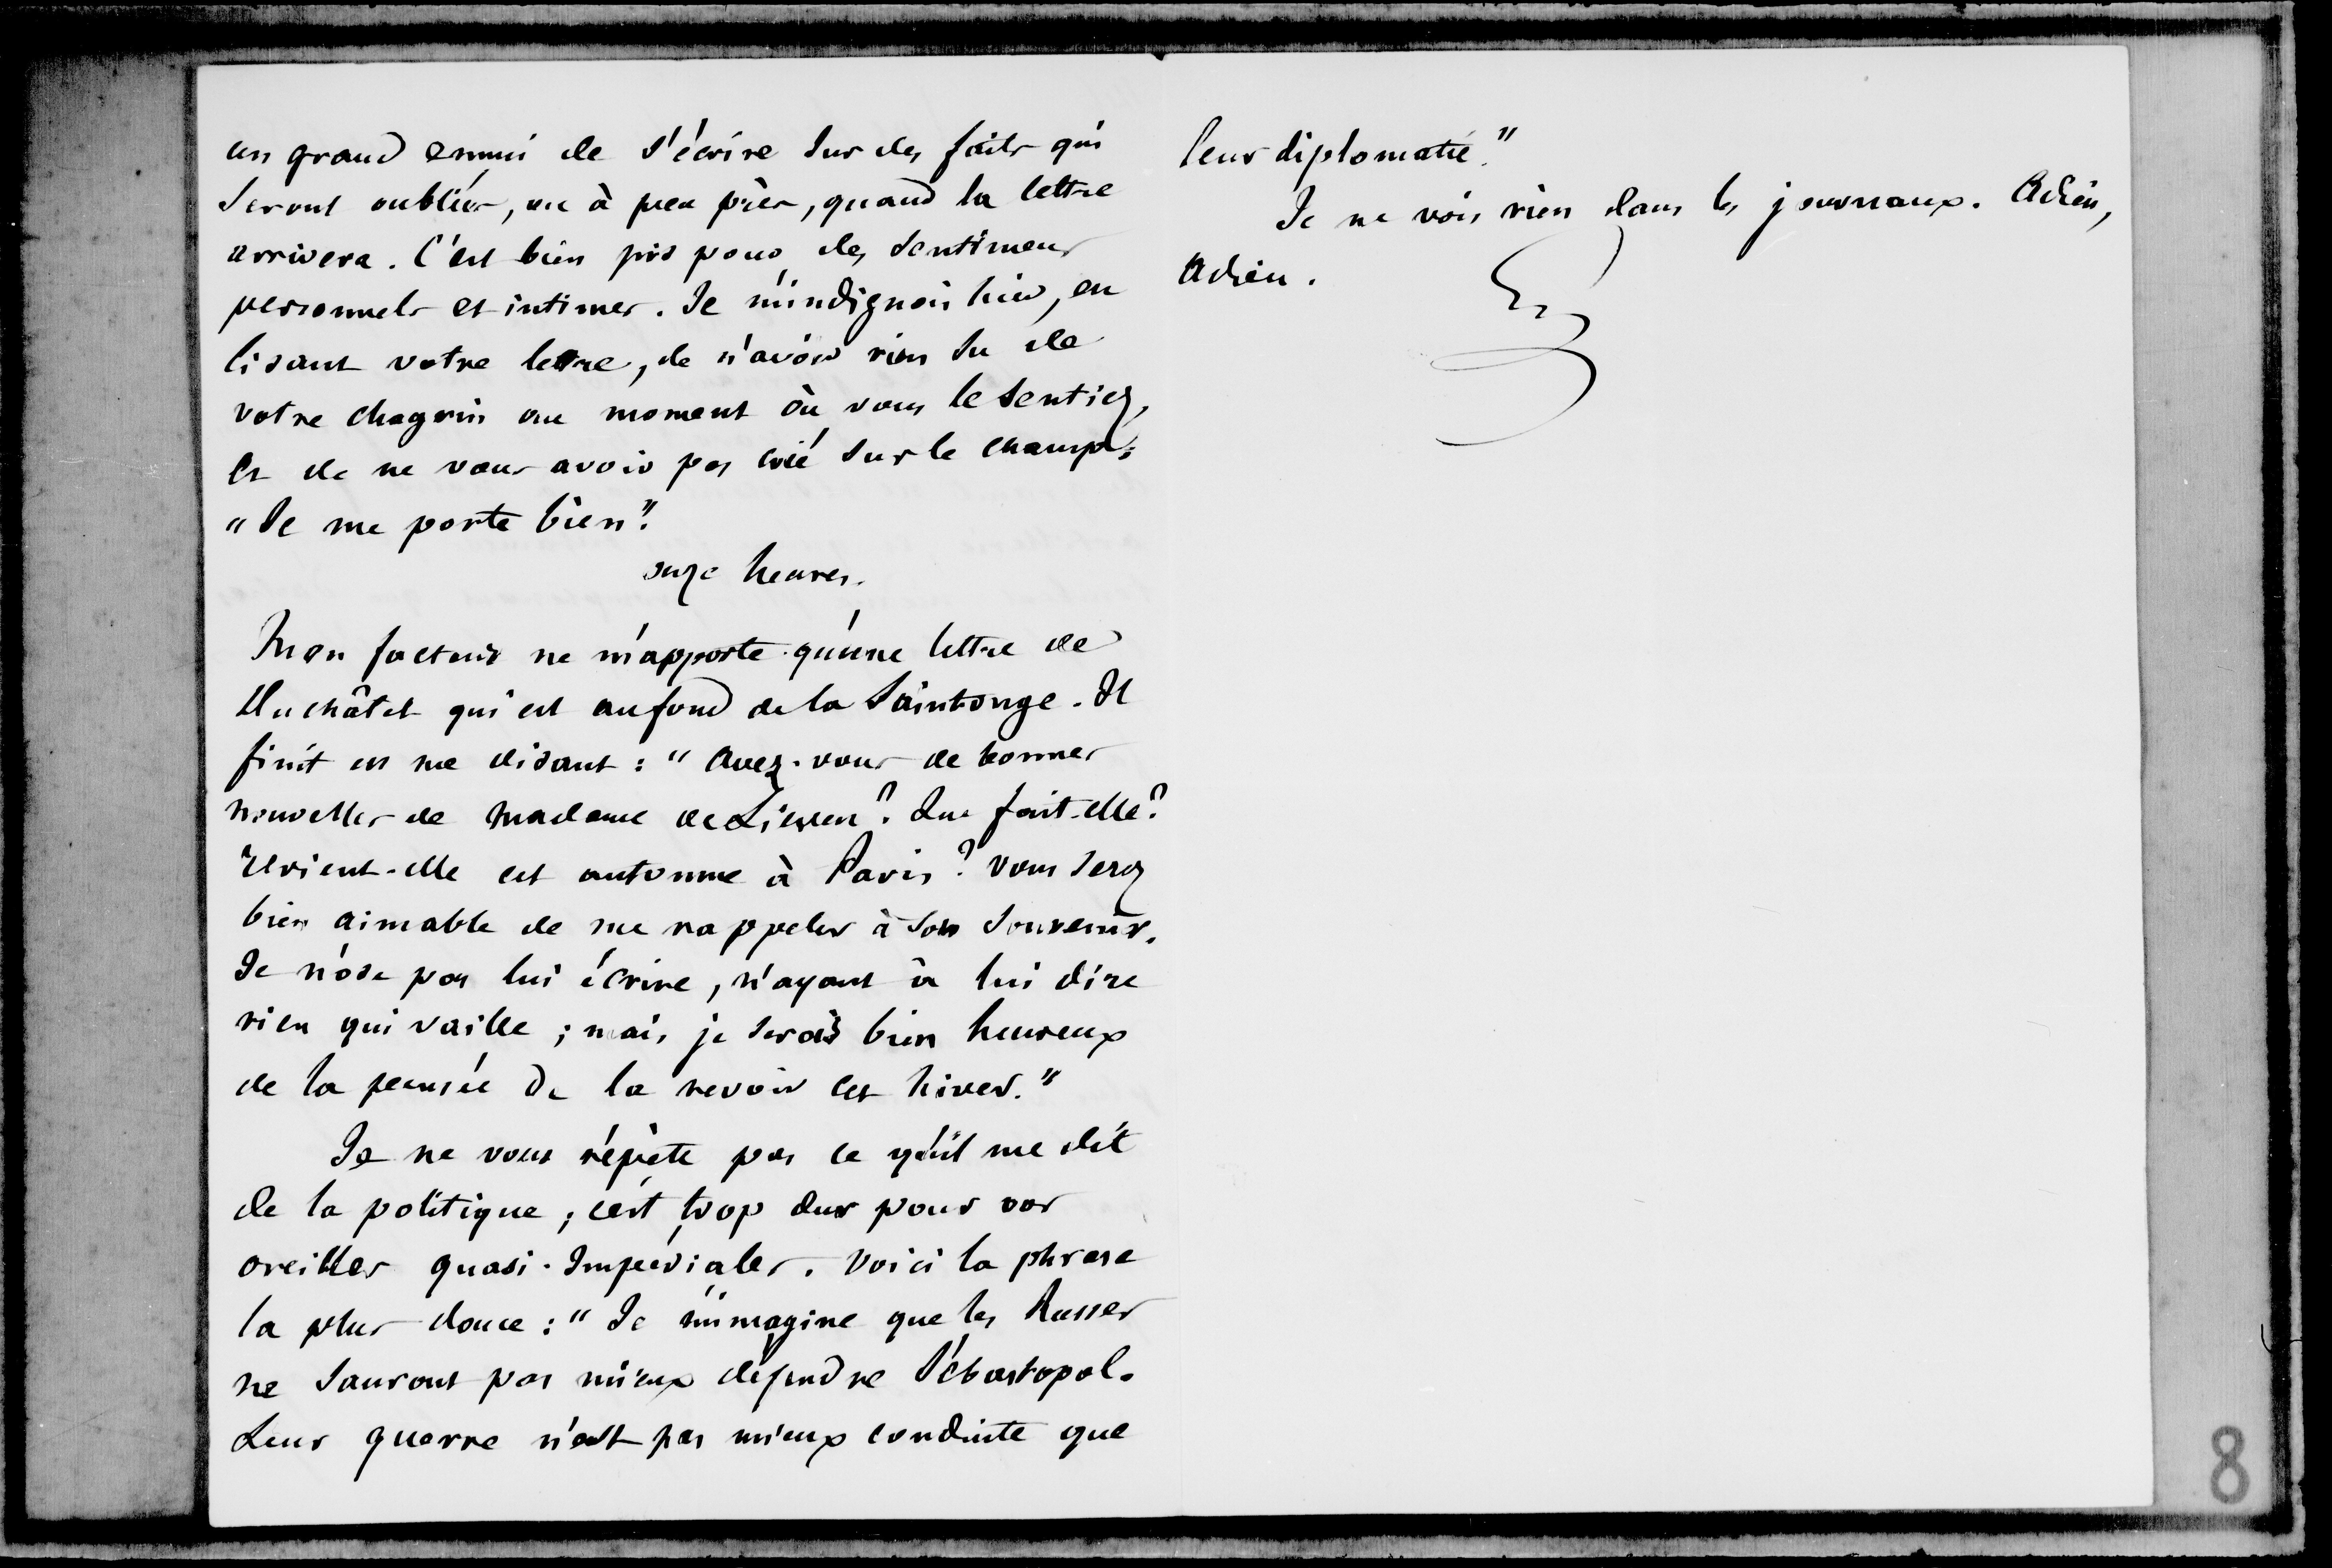 un grand ennui de s'écrire sur des faits qui
seront oubliés, ou à peu près, quand la lettre
arrivera. C'est bien pis pour des sentimens
personnels et intimes. Je m'indignois hier, en
lisant votre lettre, de n'avoir rien su de
votre chagrin au moment où vous le sentiez,
et de ne vous avoir pas crié sur le champ:
"Je me porte bien".
onze heures.
Mon facteur ne m'apporte qu'une lettre de
Duchâtel qui est au fond de la Saintonge. Il
finit en me disant: "Avez-vous de bonnes
nouvelles de Madame de Lieven? Que fait-elle?
Revient-elle cet automne à Paris? Vous serez
bien aimable de me rappeler à son souvenir.
Je n'ose pas lui écrire, n'ayant à lui dire
rien qui vaille; mais je serais bien heureux
de la pensée de la revoir cet hiver."
Je ne vous répète pas ce qu'il me dit
de la politique; c'est trop dur pour vos
oreilles quasi-Impériales. Voici la phrase
la plus douce: "Je m'imagine que les Russes
ne sauront pas mieux défendre Sébastopol.
Leur guerre n'est pas mieux conduite que
leur diplomatie."
Je ne vois rien dans les journaux. Adieu,
Adieu.
8